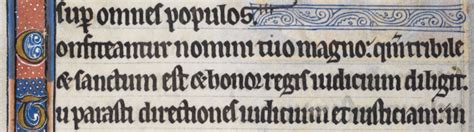 sup omnes populos.
Confiteantur nomini tuo magno: qm̄ tribile
& sanctum est & honor regis iudicium diligit.
Tu parasti directiones iudicium et iusticiam: in